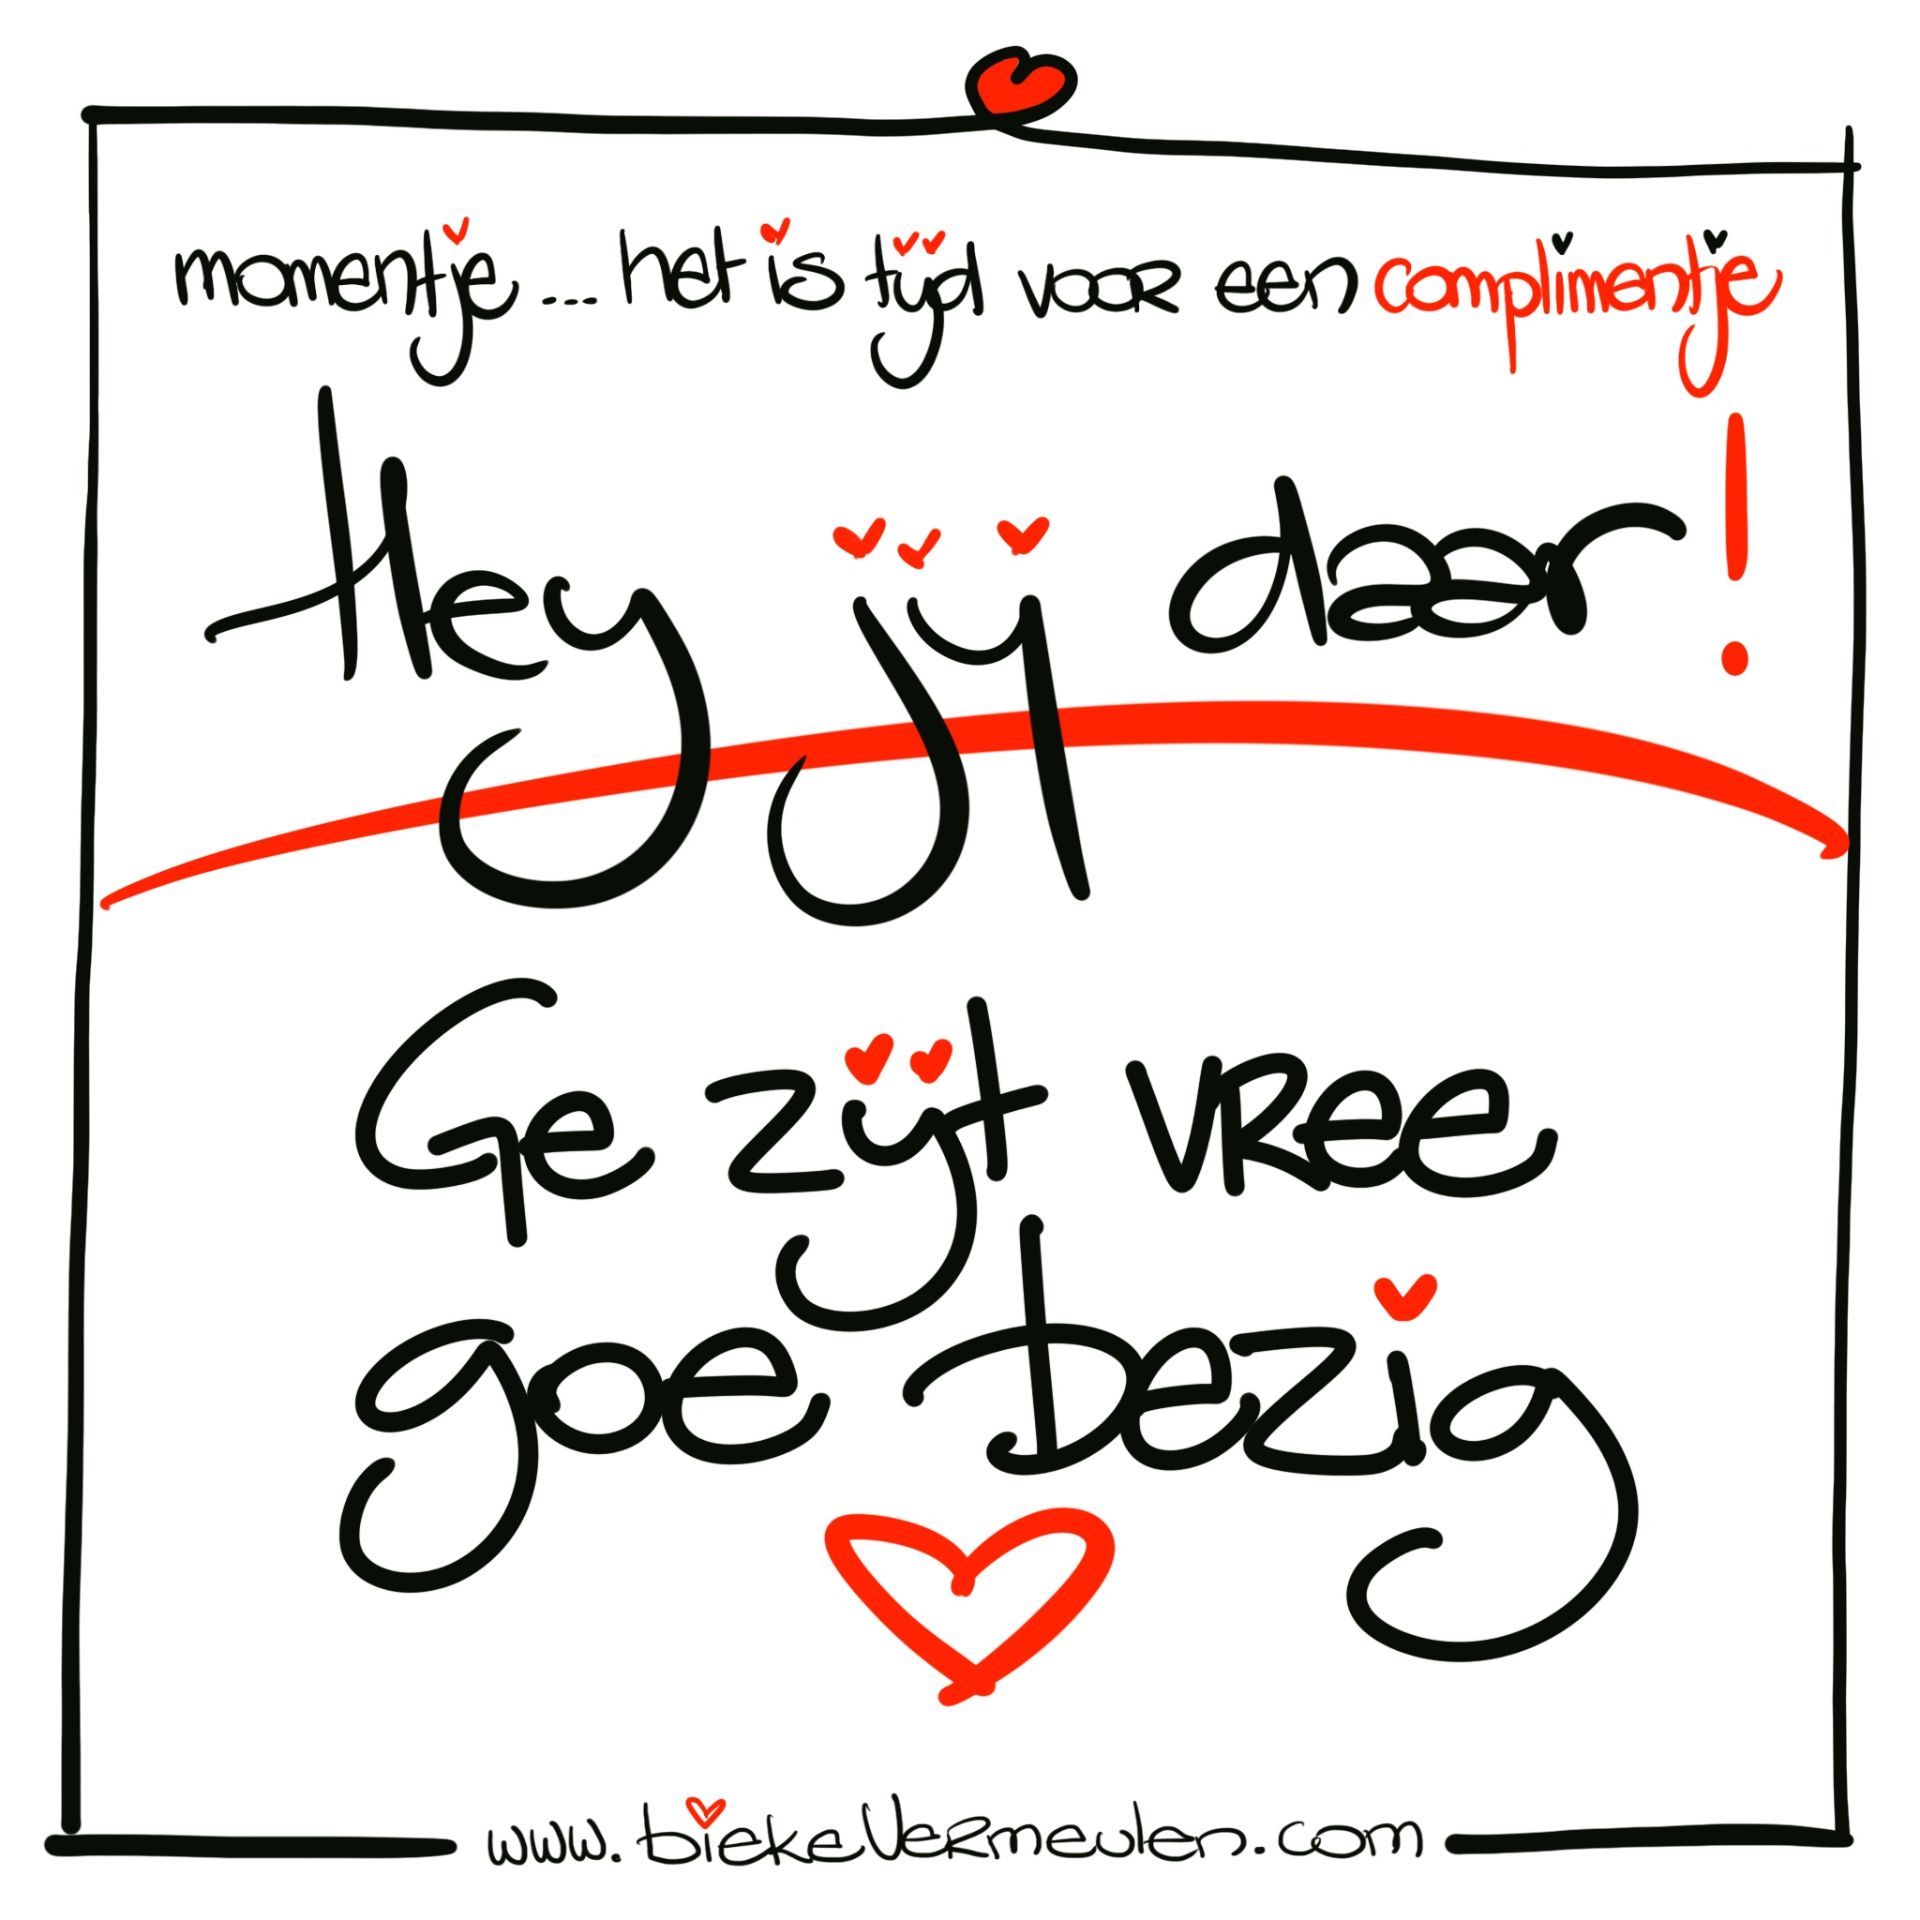 momentje ... het is tijd voor een complimentje
Hey jij daar!
Ge zijt vree
goe bezig
www.biekeVermeulen.com